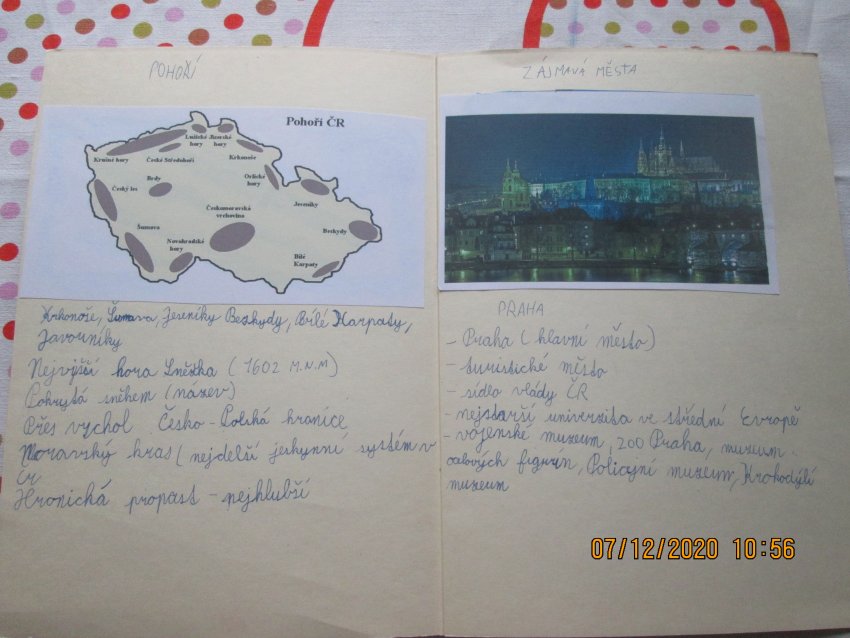 POHOŘÍ
Pohoří ČR
Lužické hory
Jizerské hory
Krušné hory
České Středohoří
Krkonoše
Český les
Brdy
Orlické hory
Jeseníky
Českomoravská vrchovina
Šumava
Novohradské hory
Beskydy
Bílé Karpaty
Krkonoše, Šumava, Jeseníky Beskydy, Bílé Karpaty,
Javorníky
Nejvyšší hora Sněžka (1602 M.N.M)
Pokrytá sněhem (název)
Přes vychol Česko-Polská hranice
Moravský kras (nejdelší jeskynní systém v
Čr
Hronická propast - nejhlubší
ZÁJMAVÁ MĚSTA
PRAHA
- Praha (hlavní město)
- turistické město
- sídlo vlády ČR
- nejstarší univerzita ve střední Evropě
- vojenské muzeum, ZOO Praha, muzeum
voskových figurín, Policejní muzeum, Krokodýlí
muzeum
07/12/2020 10:56